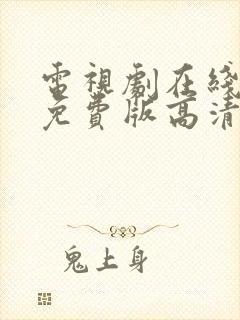 電視劇在綫
免費版高清
鬼上身